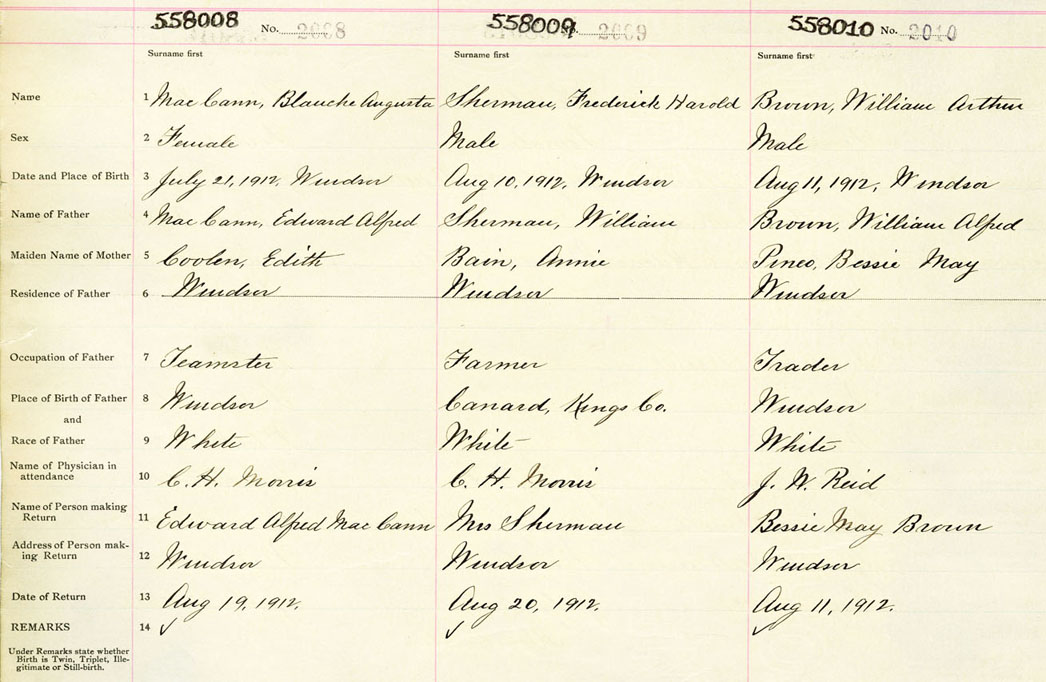 558008 No. 2008 558009 No. 2009 558010 No. 2010
Surname first Surname first Surname first
Name 1 Mac Cann, Blanche Augusta Sherman, Frederick Harold Brown, William Arthur
Sex 2 Female Male Male
Date and Place of Birth 3 July 21, 1912, Windsor Aug 10, 1912, Windsor Aug 11, 1912, Windsor
Name of Father 4 Mac Cann, Edward Alfred Sherman, William Brown, William Alfred
Maiden Name of Mother 5 Coolen, Edith Bain, Annie Pineo, Bessie May
Residence of Father 6 Windsor Windsor Windsor
Occupation of Father 7 Teamster Farmer Trader
Place of Birth of Father 8 Windsor Canard, Kings Co. Windsor
and
Race of Father 9 White White White
Name of Physician in
attendance 10 C. H. Morris C. H. Morris J. W. Reid
Name of Person making
Return 11 Edward Alfred Mac Cann Mrs Sherman Bessie May Brown
Address of Person mak-
ing Return 12 Windsor Windsor Windsor
Date of Return 13 Aug 19, 1912. Aug 20, 1912. Aug 11, 1912.
REMARKS 14 ✓ ✓ ✓
Under Remarks state whether
Birth is Twin, Triplet, Ille-
gitimate or Still-birth.